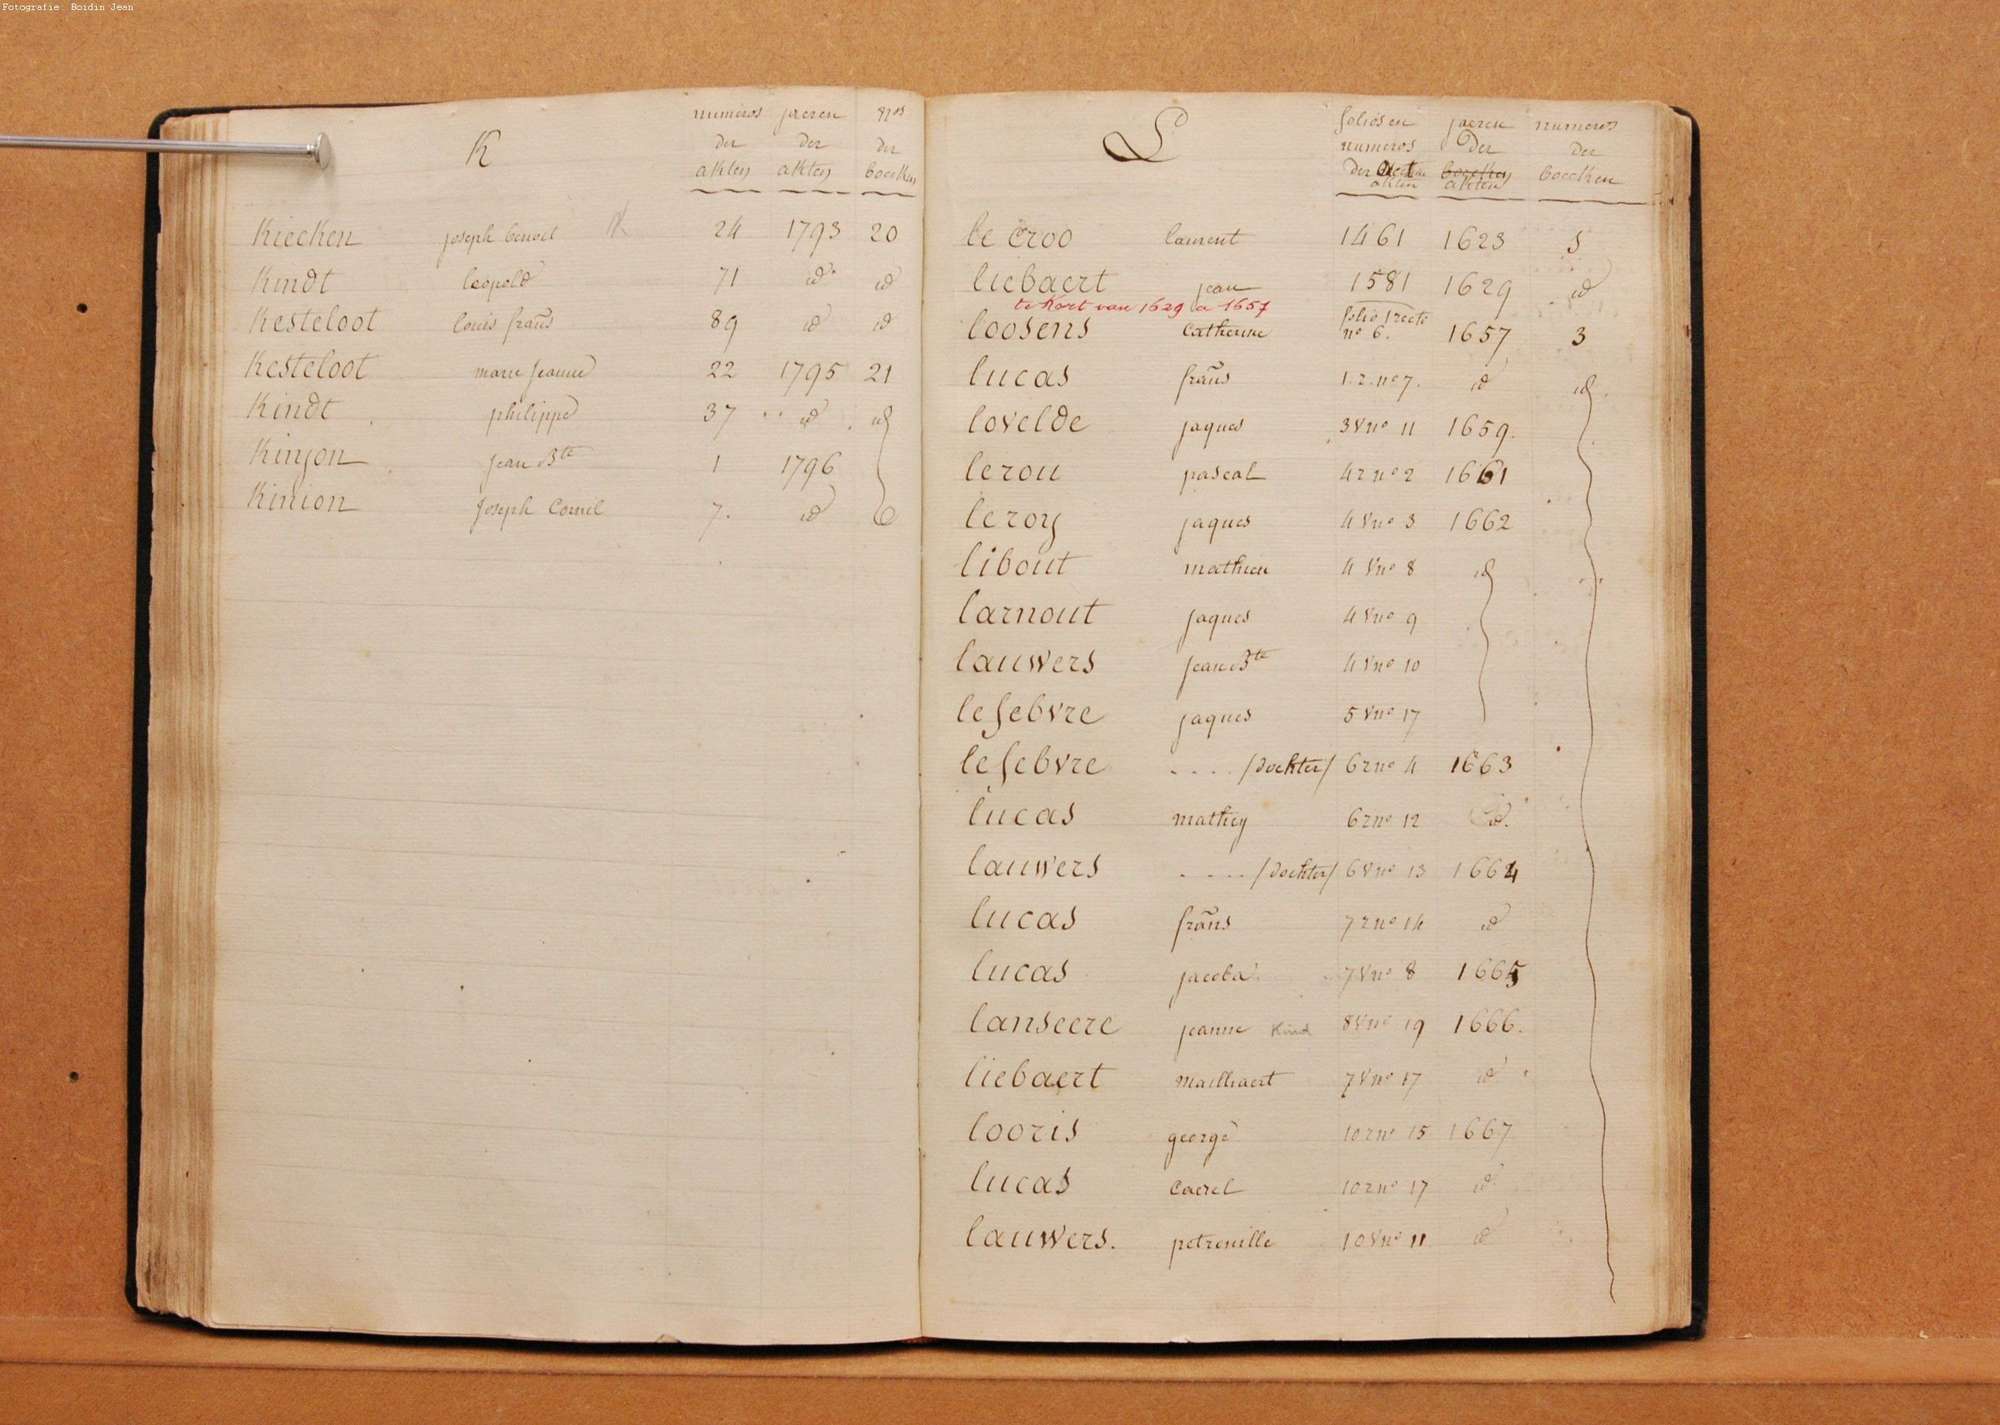 Fotografie: Boidin Jean
K
numeros der akten
jaeren der akten
Nos der boecken
Kiecken joseph benoit 24 1793 20
Kindt leopold 71 id id
Kesteloot louis frans 89 id id
Kesteloot marie jeanne 22 1795 21
Kindt philippe 37 id id
Kinyon jean Bte 1 1796
Kinion joseph Cornil 7. id
L
folios en numeros der akten
jaeren der boecken akten
numeros der boecken
le Croo laurent 1461 1623 S
liebaert jean 1581 1629 id
te Kort van 1629 a 1657
loosens Catherine folio 1 recto no 6. 1657 3
lucas frans 1.r.no 7. id id
lovelde jaques 3vno 11 1659.
lerou pascal 4rno 2 1661
leroy jaques 4vno 3 1662
libout mathieu 4vno 8 id
larnout jaques 4vno 9
lauwers jean Bte 4vno 10
lefebvre jaques 5vno 17
lefebvre .... /dochter/ 6rno 4 1663
lucas mathey 6rno 12 id.
lauwers .... /dochter/ 6vno 13 1664
lucas frans 7rno 14 id
lucas jacoba 7vno 8 1665
lanseere jeanne Kind 8vno 19 1666.
liebaert mailliaert 7vno 17 id
looris george 10rno 15 1667
lucas Caerel 10rno 17 id
lauwers. petronille 10vno 11 id